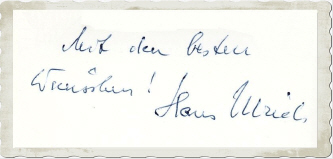 Mit den besten
Wünschen! Hans Ulrich